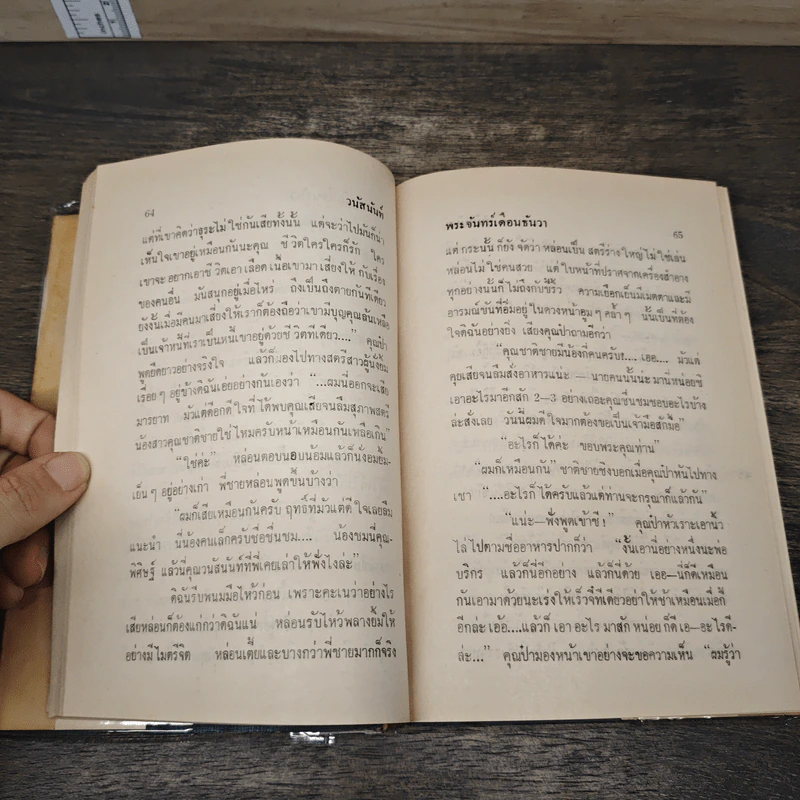 inches
64
วนัสนันท์
แต่ที่เขาคิดว่าธุระไม่ใช่กันเสียทั้งนั้น แต่จะว่าไปมันก็น่า
เห็นใจเขาอยู่เหมือนกันนะคุณ ชีวิตใครใครก็รัก ใคร
เขาจะอยากเอาชีวิตเอาเลือดเนื้อเขามาเสี่ยงให้ กับเรื่อง
ของคนอื่น มันสนุกอยู่เมื่อไหร่ ถึงเป็นถึงตายกันทีเดียว
ยังงั้นเมื่อมีคนมาเสี่ยงให้เราก็ต้องถือว่าเขามีบุญคุณล้นเหลือ
เป็นเจ้าหนี้ที่เราเป็นหนี้เขาอยู่ด้วยชีวิตทีเดียว....” คุณป๋า
พูดยืดยาวอย่างจริงใจ แล้วก็มองไปทางสตรีสาวผู้นั่งยิ้ม
เรื่อยๆ อยู่ข้างดิฉันเอ่ยอย่างกันเองว่า “...ผมนี่ออกจะเสีย
มารยาท มัวแต่ดีอกดีใจที่ได้พบคุณเสียจนลืมสุภาพสตรี
น้องสาวคุณชาติชายใช่ไหมครับหน้าเหมือนกันเหลือเกิน”
“ใช่ค่ะ” หล่อนตอบนอบน้อมแล้วก็นั่งอมยิ้ม-
เย็นๆ อยู่อย่างเก่า พี่ชายหล่อนพูดขึ้นบ้างว่า
“ผมก็เสียเหมือนกันครับ ฤทธิ์ที่มัวแต่ดีใจเลยลืม
แนะนำ นี่น้องคนเล็กครับชื่อชื่นชม.... น้องชมนี่คุณ-
พิศิษฐ์ แล้วนี่คุณวนัสนันท์ที่พี่เคยเล่าให้ฟังไงล่ะ”
ดิฉันรีบพนมมือไหว้ก่อน เพราะคะเนว่าอย่างไร
เสียหล่อนก็ต้องแก่กว่าดิฉันแน่ หล่อนรับไหว้พลางยิ้มให้
อย่างมีไมตรีจิต หล่อนเตี้ยและบางกว่าพี่ชายมากก็จริง
พระจันทร์เดือนธันวา
65
แต่กระนั้นก็ยังจัดว่าหล่อนเป็นสตรีร่างใหญ่ไม่ใช่เล่น
หล่อนไม่ใช่คนสวย แต่ใบหน้าที่ปราศจากเครื่องสำอาง
ทุกอย่างนั้นก็ไม่ถึงกับขี้ริ้ว ความเยือกเย็นมีเมตตาและมี
อารมณ์ขันที่อิ่มอยู่ในดวงหน้าอูมๆ คล้ำๆ นั้นเป็นที่ต้อง
ใจดิฉันอย่างยิ่ง เสียงคุณป๋าถามอีกว่า
“คุณชาติชายมีน้องกี่คนครับ!.... เออ.... มัวแต่
คุยเสียจนลืมสั่งอาหารแน่ะ – นายคนนั้นน่ะ มานี่หน่อยซิ
เอาอะไรมาอีกสัก 2–3 อย่างเถอะคุณชื่นชมชอบอะไรบ้าง
ล่ะสั่งเลย วันนี้ผมดีใจมากต้องขอเป็นเจ้ามือสักมื้อ”
“อะไรก็ได้ค่ะ ขอบพระคุณท่าน”
“ผมก็เหมือนกัน” ชาติชายชิงบอกเมื่อคุณป๋าหันไปทาง
เขา “....อะไรก็ได้ครับแล้วแต่ท่านจะกรุณาก็แล้วกัน”
“แน่ะ–ฟังพูดเข้าซี!” คุณป๋าหัวเราะเอานิ้ว
ไล่ไปตามชื่ออาหารปากก็ว่า “งั้นเอานี่อย่างหนึ่งนะพ่อ
บริกร แล้วก็นี่อีกอย่าง แล้วก็นี่ด้วย เออ–นี่ก็ดีเหมือน
กันเอามาด้วยนะเร่งให้เร็วจี๋ทีเดียวอย่าให้ช้าเหมือนเมื่อกี้
อีกล่ะ เอ้อ....แล้วก็ เอา อะไร มาสัก หน่อย ก็ดี เอ–อะไรดี-
ล่ะ...” คุณป๋ามองหน้าเขาอย่างจะขอความเห็น “ผมรู้ว่า